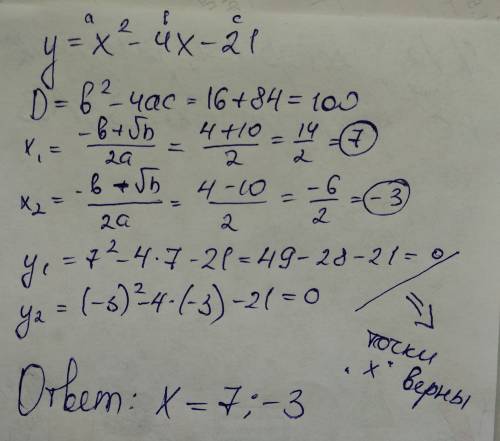 a в c
y = x² - 4x - 21
D = в² - 4ac = 16 + 84 = 100
x₁ = -в+√D / 2a = 4+10 / 2 = 14 / 2 = 7
x₂ = -в+√D / 2a = 4-10 / 2 = -6 / 2 = -3
y₁ = 7² - 4·7 - 21 = 49 - 28 - 21 = 0
y₂ = (-3)² - 4·(-3) - 21 = 0
⇒
точки
"x" верны
Ответ: x = 7; -3